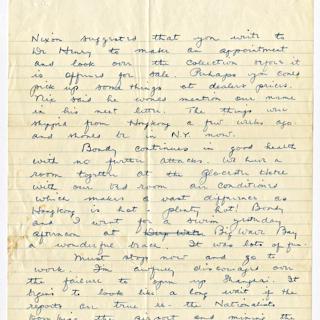 Nixon suggested that you write to
Dr Henry to make an appointment
and look over the collection before it
is offered for sale. Perhaps you could
pick up some things at dealers prices.
Nix said he would mention our name
in his next letter. The things were
shipped from Hongkong a few weeks ago
and should be in N.Y. now.
Bondy continues in good health
with no further attacks. We have a
room together at the Gloucester Hotel
with our bed room air conditioned
which makes a vast difference as
Hongkong is hot - plenty hot! Bondy
and I went for a swim yesterday
afternoon at Big Wave Bay
a wonderful beach. It was lots of fun.
Must stop now and go to
work. I'm awfully discouraged over
the failure to open up Shanghai. It
begins to look like a long wait if the
reports are true re the Nationalists
bombing the airport and mining the